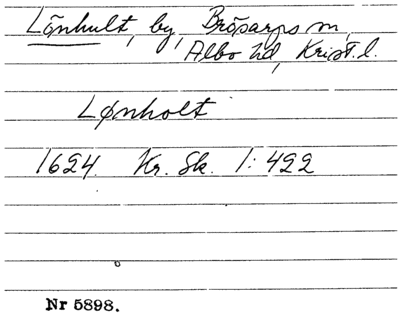 Lönhult, by, Brösarps sn,
Albo hd, Krist. l.
Lønholt
1624 Kr. Sk. 1:422
Nr 5898.